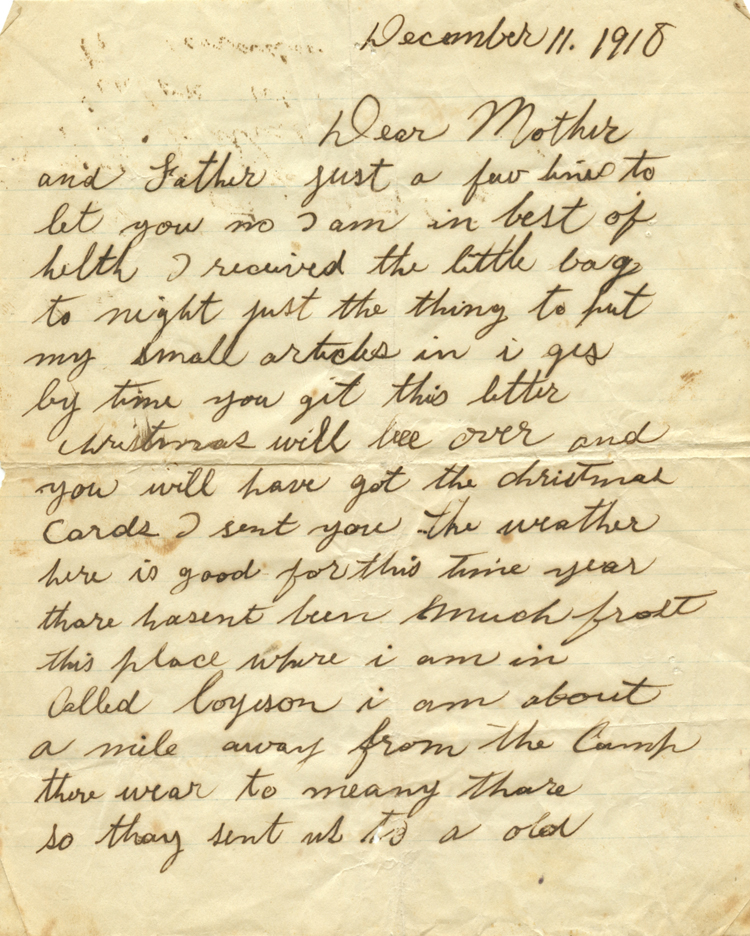 December 11. 1918
Dear Mother
and Father just a few lines to
let you no I am in best of
helth I received the little bag
to night just the thing to put
my small articles in i ges
by time you git this letter
christmas will bee over and
you will have got the christmas
Cards I sent you the weather
here is good for this time year
thare hasent been much frost
this place where i am in
Called i am about
a mile away from the Camp
there wear to meany thare
so thay sent us to a old